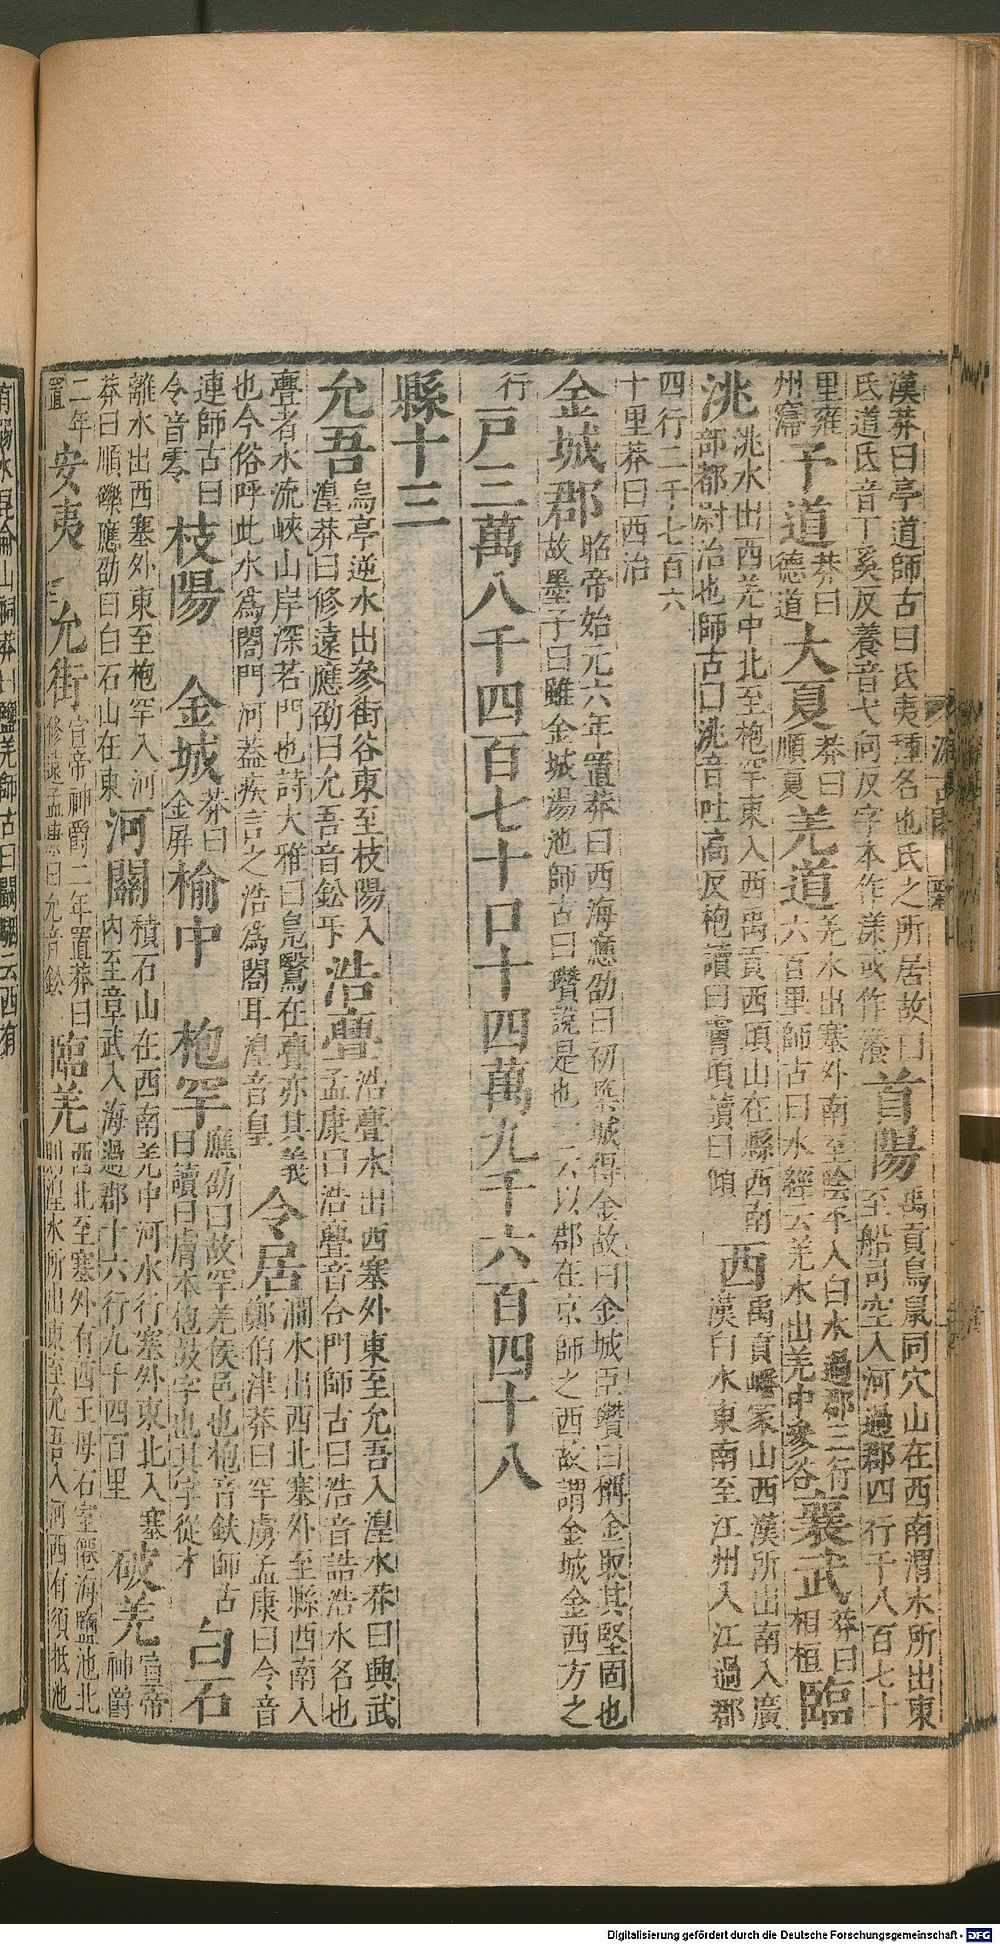 漢莽曰亭道師古曰氐夷種名也氐之所居故曰
氐道氐音丁奚反養音弋向反字本作漾或作瀁
首陽
禹貢鳥鼠同穴山在西南渭水所出東
至船司空入河過郡四行千八百七十
里雍
州寖
予道
莽曰
德道
大夏
莽曰
順夏
羌道
羌水出塞外南至陰平入白水過郡三行
六百里師古曰水經云羌水出羌中參谷
襄武
莽曰
相桓
臨
洮
洮水出西羌中北至枹罕東入西禹貢西頃山在縣西南
部都尉治也師古曰洮音吐高反枹讀曰膚頃讀曰傾
西
禹貢嶓冢山西漢所出南入廣
漢白水東南至江州入江過郡
四行二千七百六
十里莽曰西治
金城郡
昭帝始元六年置莽曰西海應劭曰初築城得金故曰金城臣瓚曰稱金取其堅固也
故墨子曰雖金城湯池師古曰瓚說是也一云以郡在京師之西故謂金城金西方之
行
戸三萬八千四百七十口十四萬九千六百四十八
縣十三
允吾
烏亭逆水出參街谷東至枝陽入
湟莽曰修遠應劭曰允吾音鈆牙
浩亹
浩亹水出西塞外東至允吾入湟水莽曰興武
孟康曰浩亹音合門師古曰浩音誥浩水名也
亹者水流峽山岸深若門也詩大雅曰鳬鷖在亹亦其義
也今俗呼此水爲閤門河葢疾言之浩爲閤耳湟音皇
令居
澗水出西北塞外至縣西南入
鄭伯津莽曰罕虜孟康曰令音
連師古曰
令音零
枝陽
金城
莽曰
金屏
榆中
枹罕
應劭曰故罕羌侯邑也枹音鈇師古
曰讀曰膚本枹鼓字也其字從木
白石
離水出西塞外東至枹罕入河
莽曰順礫應劭曰白石山在東
河關
積石山在西南羌中河水行塞外東北入塞
內至章武入海過郡十六行九千四百里
破羌
宣帝
神爵
二年
置
安夷
允街
宣帝神爵二年置莽曰
修遠孟康曰允音鈆
臨羌
西北至塞外有西王母石室僊海鹽池北
則湟水所出東至允吾入河西有須抵池
有弱水昆侖山祠莽曰鹽羌師古曰闞駰云西有
Digitalisierung gefördert durch die Deutsche Forschungsgemeinschaft - DFG